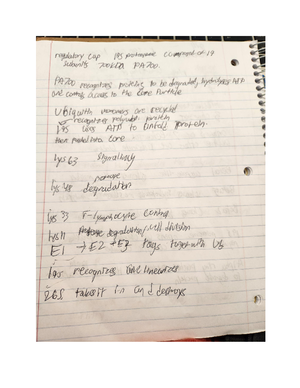 regulatory cap 19S proteasome composed of 19
subunits 700kDa PA700.
PA700 recognizes proteins to be degraded, hydrolyzes ATP
and controls access to the core particle
Ubiquitin monomers are recycled
recognizes polyubiq protein
19S uses ATP to unfold protein.
then moved into core
Lys 63 signalling
Lys 48 degradation
Lys 33 T-lymphocyte control
Lys 11 degradation/cell division
E1 → E2 → E3 tags target with Ub
19S recognizes and linearizes
26S takes it in and destroys